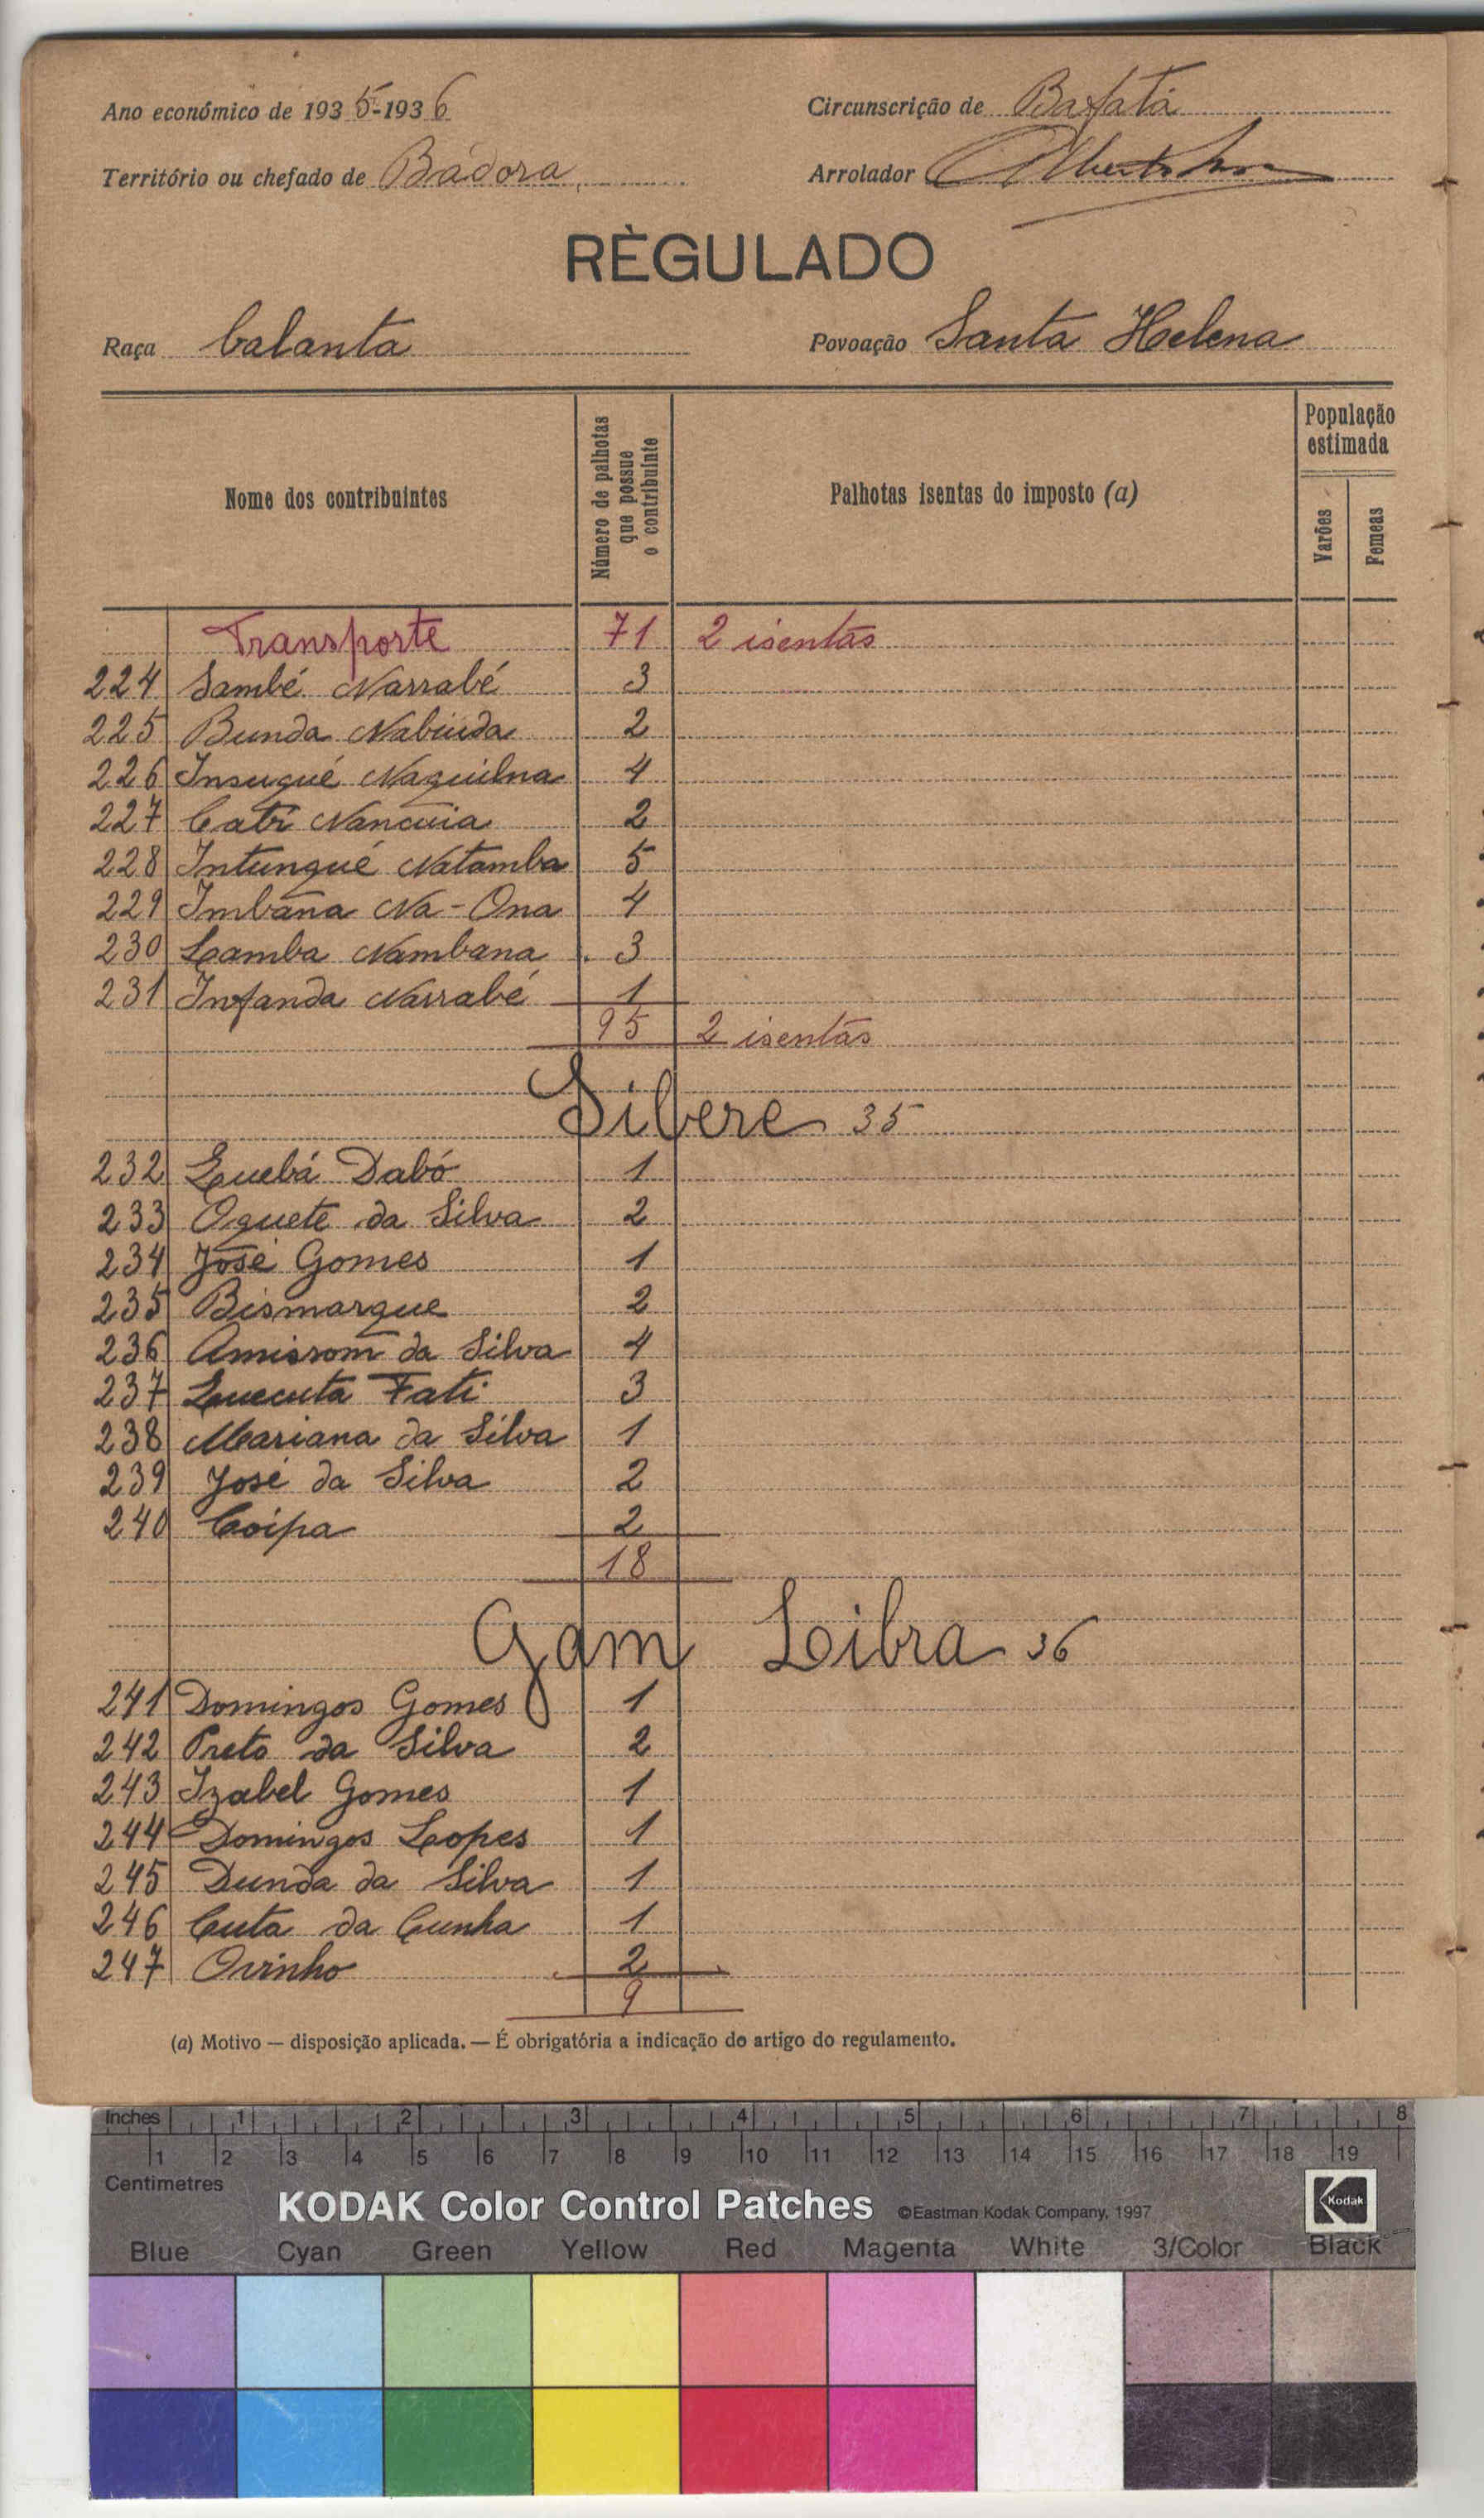 Ano económico de 1935-1936
Circunscrição de Bafatá
Território ou chefado de Bádora
Arrolador
RÈGULADO
Raça balanta
Povoação Santa Helena
Nome dos contribuintes
Número de palhotas que possue o contribuinte
Palhotas isentas do imposto (a)
População estimada
Varões
Femeas
Transporte 71 2 isentas
224 Sambé Narrabé 3
225 Bunda 2
226 Insugué 4
227 Catri 2
228 Intungué Natamba 5
229 Imbana Na-Ona 4
230 Lamba Nambana 3
231 Infanda Narrabé 1
95 2 isentas
Sibere 35
232 Quebá Dabó 1
233 Oquete da Silva 2
234 José Gomes 1
235 Bismarque 2
236 da Silva 4
237 Quecuta Fati 3
238 Mariana da Silva 1
239 José da Silva 2
240 Coipa 2
18
Gam Libra 36
241 Domingos Gomes 1
242 Preto da Silva 2
243 Izabel Gomes 1
244 Domingos Lopes 1
245 Dunda da Silva 1
246 Cuta da Cunha 1
247 2
9
(a) Motivo — disposição aplicada. — É obrigatória a indicação do artigo do regulamento.
Inches 1 2 3 4 5 6 7 8
1 2 3 4 5 6 7 8 9 10 11 12 13 14 15 16 17 18 19
Centimetres
KODAK Color Control Patches ©Eastman Kodak Company, 1997 Kodak
Blue Cyan Green Yellow Red Magenta White 3/Color Black